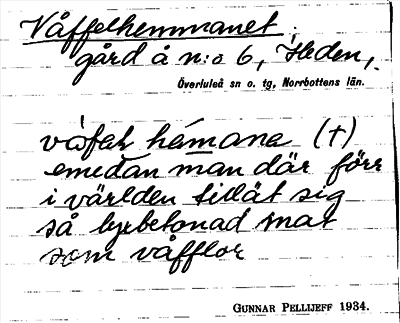 Våffelhemmanet;
gård å n:o 6, Heden,
Överluleå sn o. tg, Norrbottens län.
våfel hémana (†)
emedan man där förr
i världen tillät sig
så lyxbetonad mat
som våfflor
GUNNAR PELLIJEFF 1934.